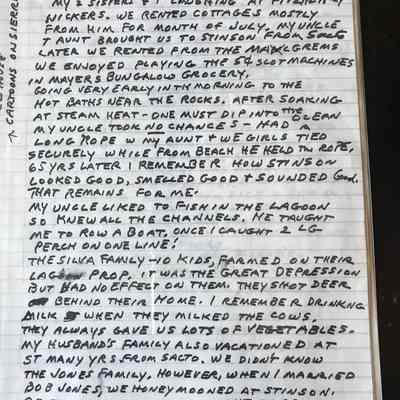 MY 2 SISTERS & I LAUGHING AT
NICKERS. WE RENTED COTTAGES MOSTLY
FROM HIM FOR MONTH OF JULY. MY UNCLE
& AUNT BROUGHT US TO STINSON FROM SACTO
LATER WE RENTED FROM THE
WE ENJOYED PLAYING THE 5¢ SLOT MACHINES
IN MAYERS BUNGALOW GROCERY.
GOING VERY EARLY IN TH MORNING TO THE
HOT BATHS NEAR THE ROCKS. AFTER SOAKING
AT STEAM HEAT - ONE MUST DIP INTO THE OCEAN
MY UNCLE TOOK NO CHANCES - HAD A
LONG ROPE W MY AUNT & WE GIRLS TIED
SECURELY WHILE FROM BEACH HE HELD TH ROPE.
65 YRS LATER I REMEMBER HOW STINSON
LOOKED GOOD, SMELLED GOOD & SOUNDED GOOD.
THAT REMAINS FOR ME.
MY UNCLE LIKED TO FISH IN THE LAGOON
SO KNEW ALL THE CHANNELS. HE TAUGHT
ME TO ROW A BOAT. ONCE I CAUGHT 2 LG
PERCH ON ONE LINE!
THE SILVA FAMILY - 10 KIDS, FARMED ON THEIR
LAGOON PROP. IT WAS THE GREAT DEPRESSION
BUT HAD NO EFFECT ON THEM. THEY SHOT DEER
BEHIND THEIR HOME. I REMEMBER DRINKING
MILK WHEN THEY MILKED THE COWS.
THEY ALWAYS GAVE US LOTS OF VEGETABLES.
MY HUSBAND'S FAMILY ALSO VACATIONED AT
ST MANY YRS. FROM SACTO. WE DIDN'T KNOW
THE JONES FAMILY. HOWEVER, WHEN I MARRIED
BOB JONES, WE HONEYMOONED AT STINSON.
↑ CARTOONS ON SIERRA